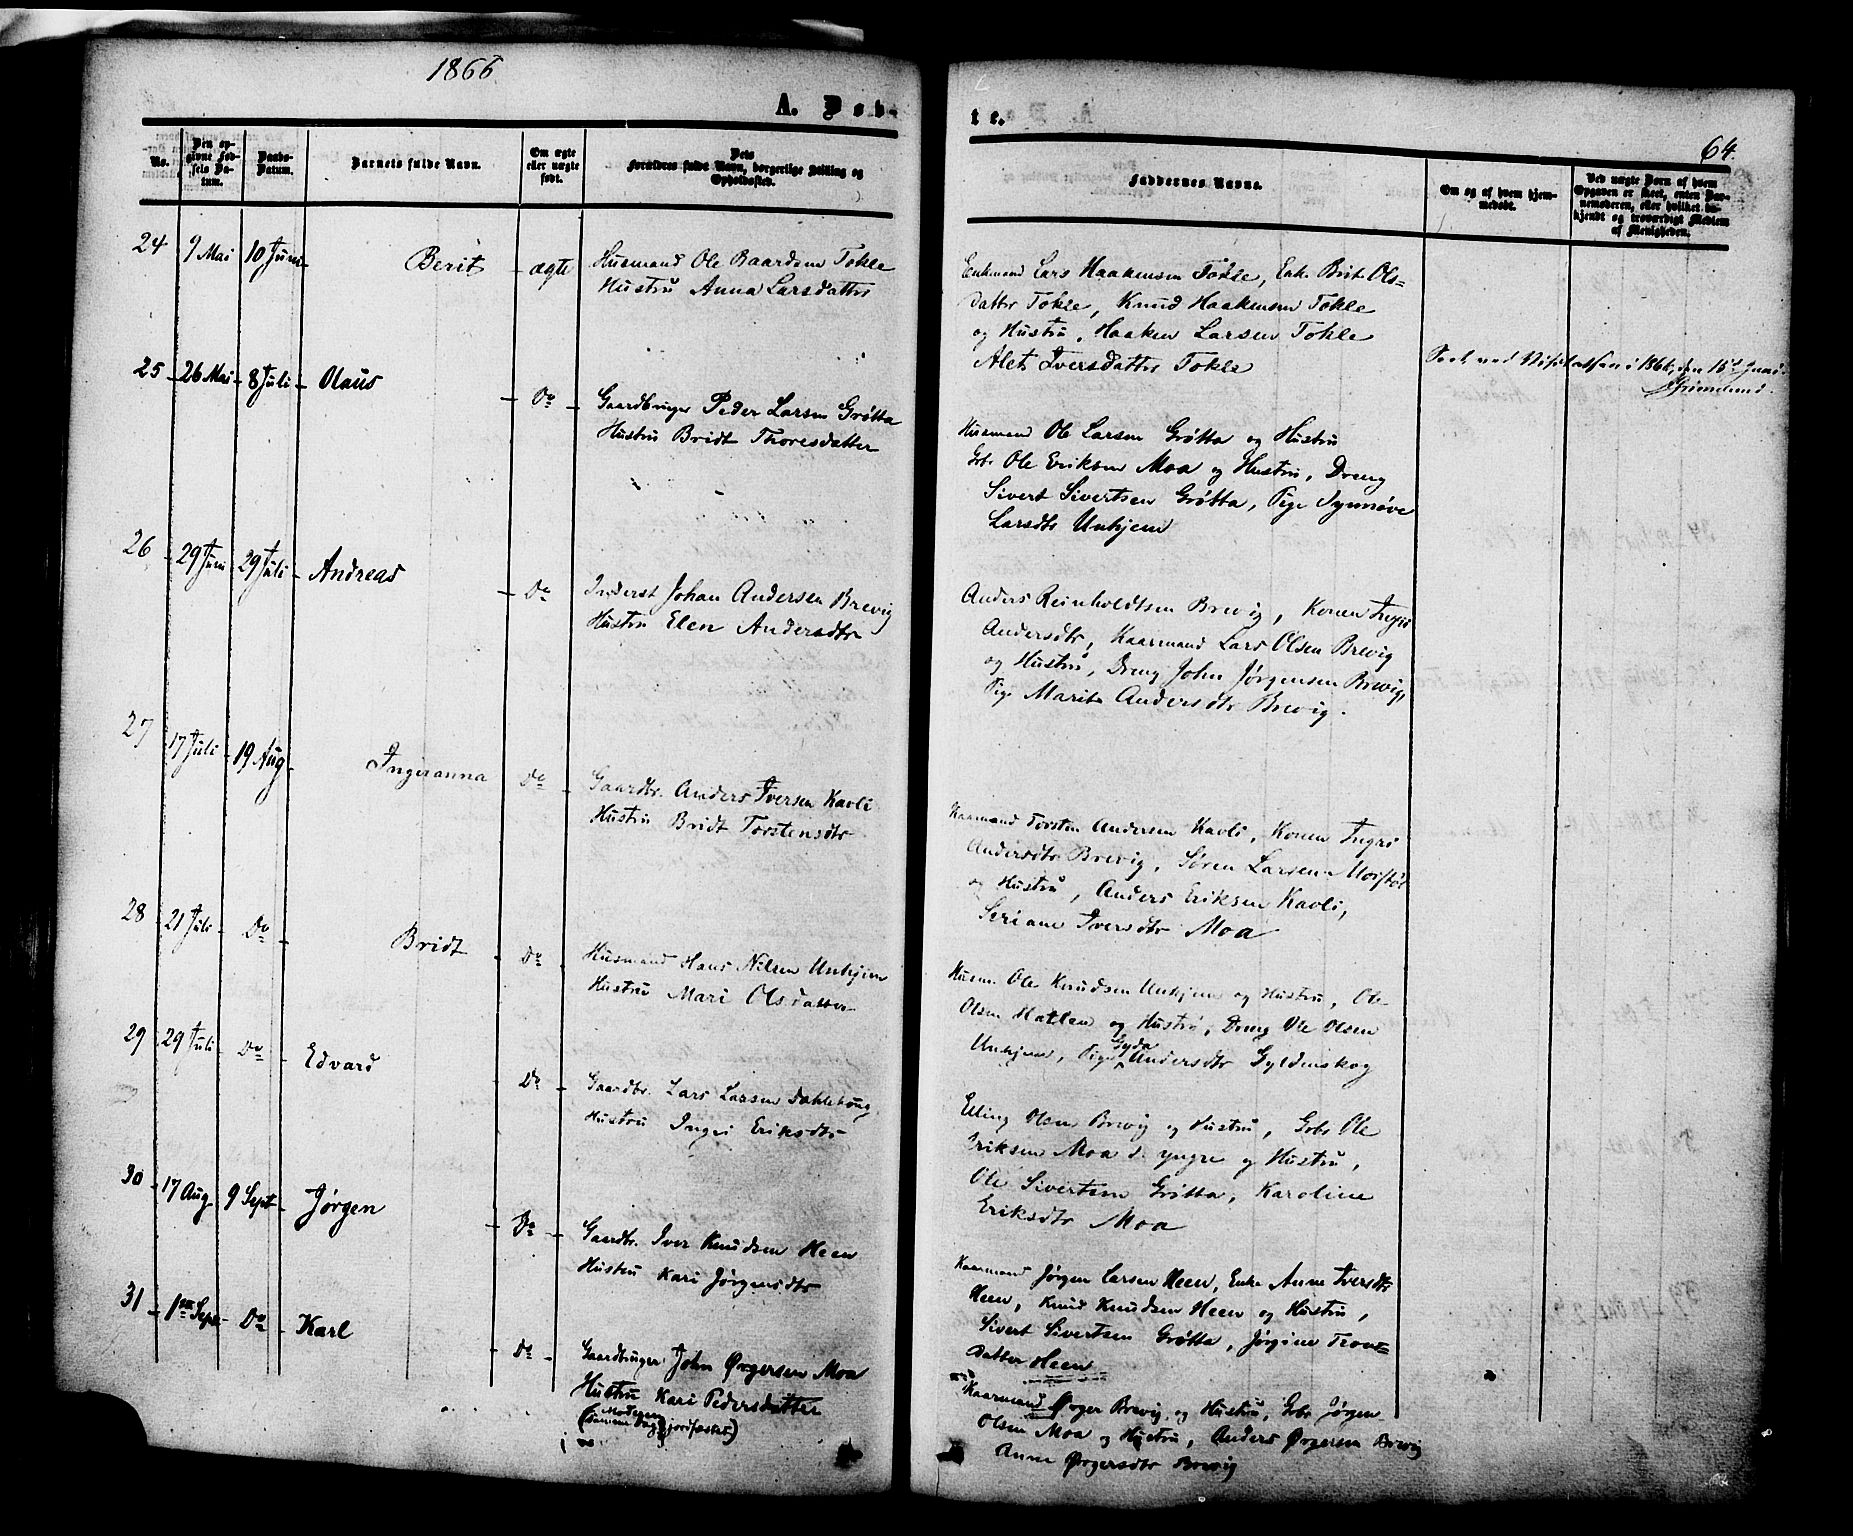 1866
A. Døb-
te.
64.
No.
Den op-
givne Fød-
sels Da-
tum.
Daabs-
Datum.
Barnets fulde Navn.
Om ægte
eller uægte
født.
Dets
Forældres fulde Navn, borgerlige Stilling og
Opholdssted.
Faddernes Navne.
Om og af hvem hjem-
medøbt.
Ved uægte Børn af hvem
Opgaven er skeet, enten Bar-
nemoderen, eller hvilket be-
kjendt og troværdigt Medlem
af Menigheden.
24 9 Mai 10 Juni Berit ægte Husmand Ole Baardsen Tokle
Hustru Anna Larsdatter
Enkemand Lars Haakensen Tokle, Enke Brit Ols-
datter Tokle, Knud Haakensen Tokle
og Hustru, Haaken Larsen Tokle
Alet Iversdatter Tokle
Seet ved Visitatsen i 1866, den 18de Juni.
Grimelund.
25 26 Mai 8 Juli Olaus Do Gaardbruger Peder Larsen Grøtta
Hustru Bridt Thoresdatter
Husmand Ole Larsen Grøtta og Hustru
Gbr. Ole Eriksen Moa og Hustru, Dreng
Sivert Sivertsen Grøtta, Pige Synnøve
Larsdtr Unhjem
26 29 Juni 29 Juli Andreas Do Inderst Johan Andersen Brevig
Hustru Elen Andersdtr
Anders Reinholdtsen Brevig, Konen Ingri
Andersdtr, Kaarmand Lars Olsen Brevig
og Hustru, Dreng John Jørgensen Brevig,
Pige Marit Andersdtr Brevig.
27 17 Juli 19 Aug Ingeranna Do Gaardbr. Anders Iversen Kavli
Hustru Bridt Torstensdtr
Kaarmand Torsten Andersen Kavli, Konen Ingri
Andersdtr Brevig, Søren Larsen Morstøl
og Hustru, Anders Eriksen Kavli,
Seriane Iversdtr Moa
28 21 Juli Do Bridt Do Husmand Hans Nilsen Unhjem
Hustru Mari Olsdatter
Husm. Ole Knudsen Unhjem og Hustru, Ole
Olsen Hatlen og Hustru, Dreng Ole Olsen
Unhjem, Pige Gyda Andersdtr Gyldenskog
29 29 Juli Do Edvard Do Gaardbr. Lars Larsen Dahlehoug
Hustru Ingri Eriksdtr
Elling Olsen Brevig og Hustru, Gbr Ole
Eriksen Moa d. yngre og Hustru,
Ole Sivertsen Grøtta, Karoline
Eriksdtr Moa
30 17 Aug 9 Sept Jørgen Do Gaardbr. Iver Knudsen Heen
Hustru Kari Jørgensdtr
Kaarmand Jørgen Larsen Heen, Enke Anne Iversdtr
Heen, Knud Knudsen Heen og Hustru,
Sivert Sivertsen Grøtta, Jørgine Trons-
datter Heen
31 1ste Sept Do Karl Do Gaardbruger John Ørgersen Moa
Hustru Kari Pedersdatter
(Moderen
samme Dag jordfæstet)
Kaarmand Ørger Brevig og Hustru, Gbr Jørgen
Olsen Moa og Hustru, Anders Ørgersen Brevig
Anne Ørgersdtr Brevig